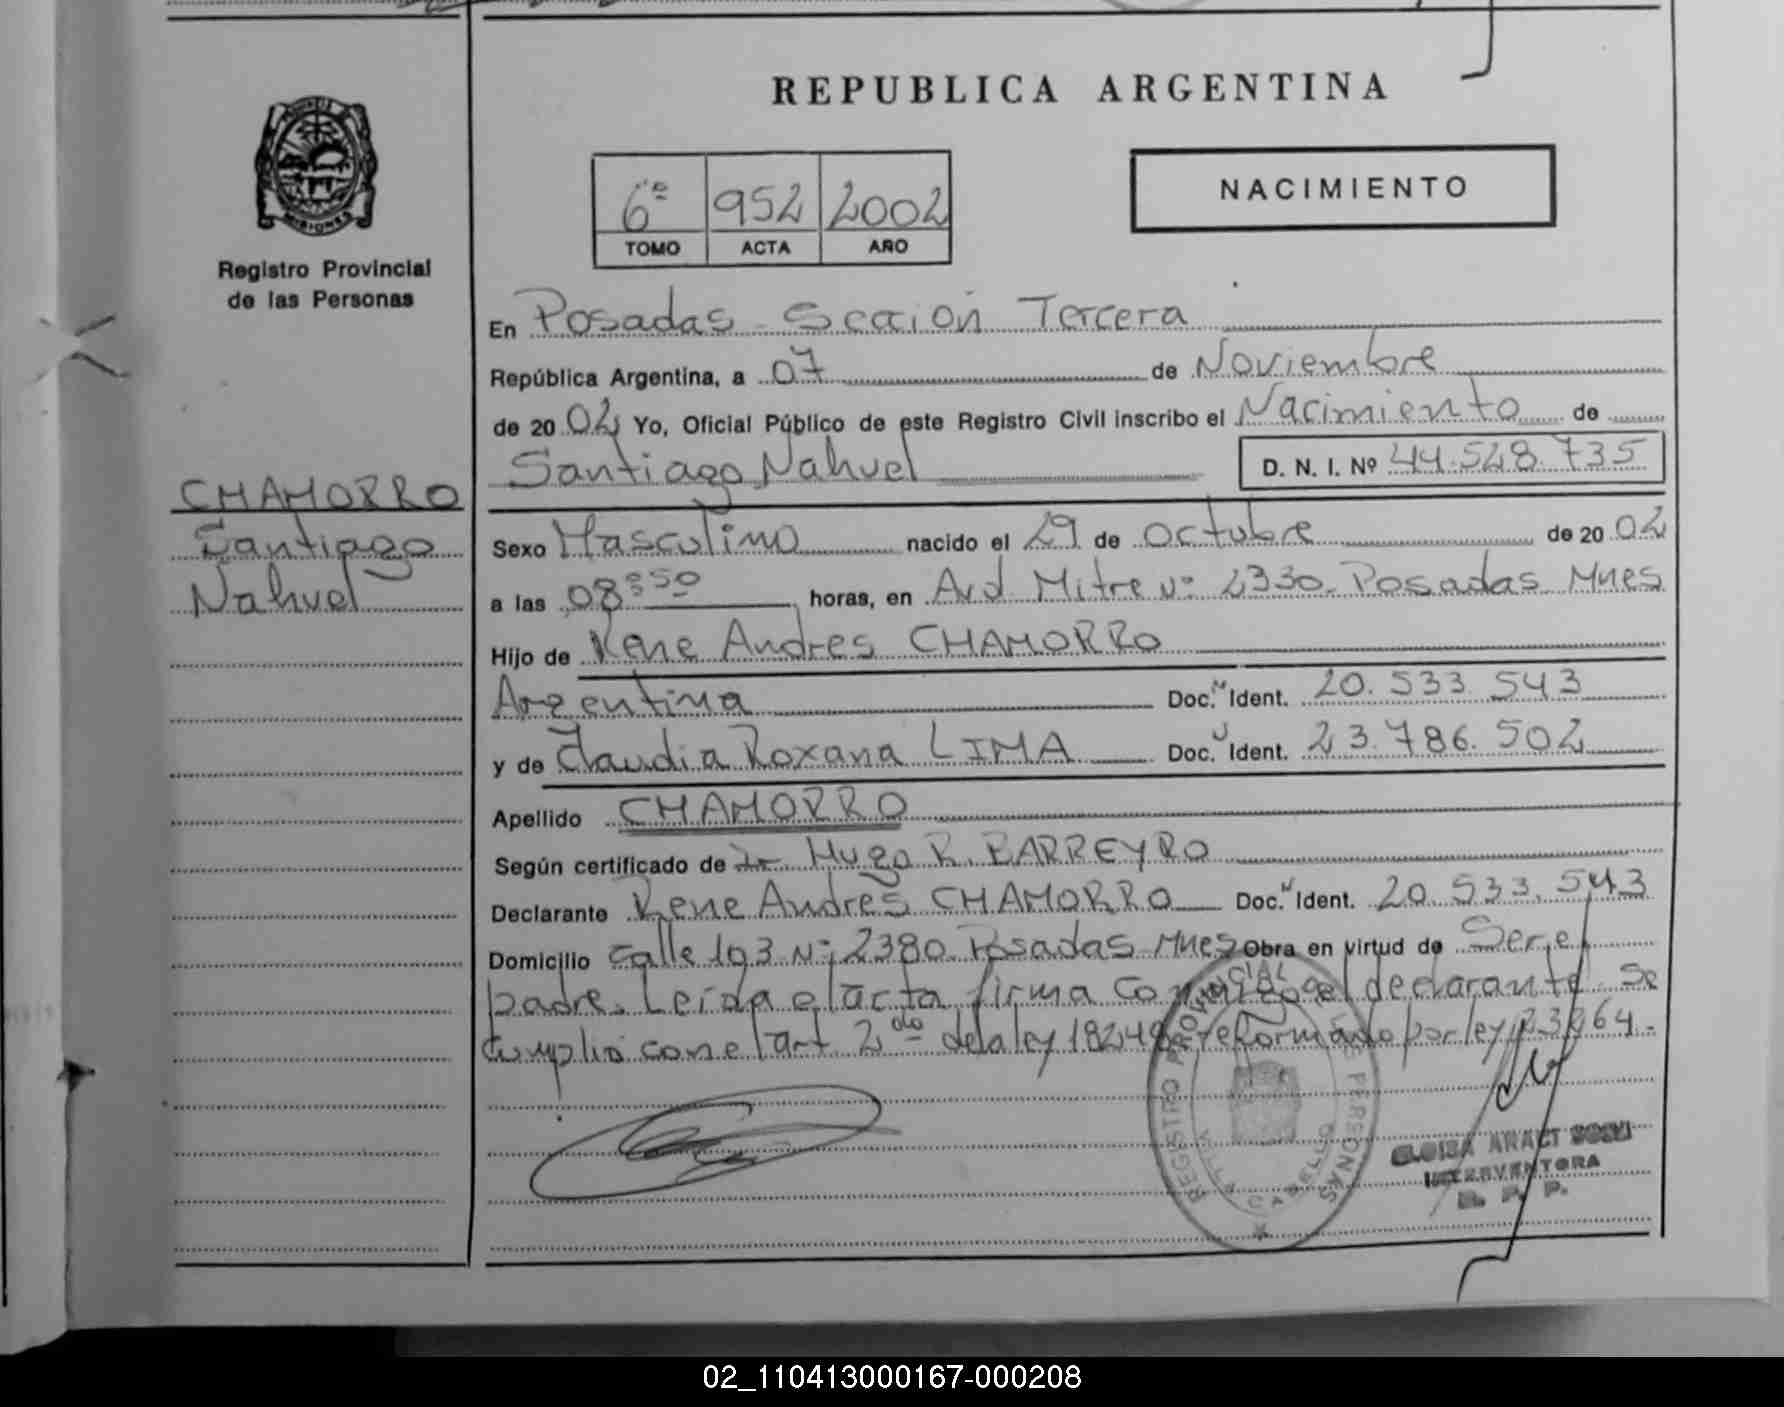 REPUBLICA ARGENTINA
MISIONES
Registro Provincial
de las Personas
6º 952 2002
TOMO ACTA AÑO
NACIMIENTO
En Posadas - Sección Tercera
República Argentina, a 07 de Noviembre
de 2002 Yo, Oficial Público de este Registro Civil inscribo el Nacimiento de
Santiago Nahuel D. N. I. Nº 44.548.735
CHAMORRO
Santiago
Nahuel
Sexo Masculino nacido el 29 de Octubre de 2002
a las 08:50 horas, en Avd Mitre Nº 2330. Posadas Mnes
Hijo de Rene Andres CHAMORRO
Argentina Doc. Ident. 20.533.543
y de Claudia Roxana LIMA Doc. Ident. 23.786.502
Apellido CHAMORRO
Según certificado de Dr. Hugo R. BARREYRO
Declarante Rene Andres CHAMORRO Doc. Ident. 20.533.543
Domicilio Calle 193 Nº 2380 Posadas Mnes Obra en virtud de Ser el
padre. Leída el acta firma conmigo el declarante. Se
cumplió con el art 2do de la ley 18248 reformado por ley 23264.
REGISTRO PROVINCIAL DE LAS PERSONAS
VILLA CABELLO
INTERVENTORA
R. P. P.
02_110413000167-000208